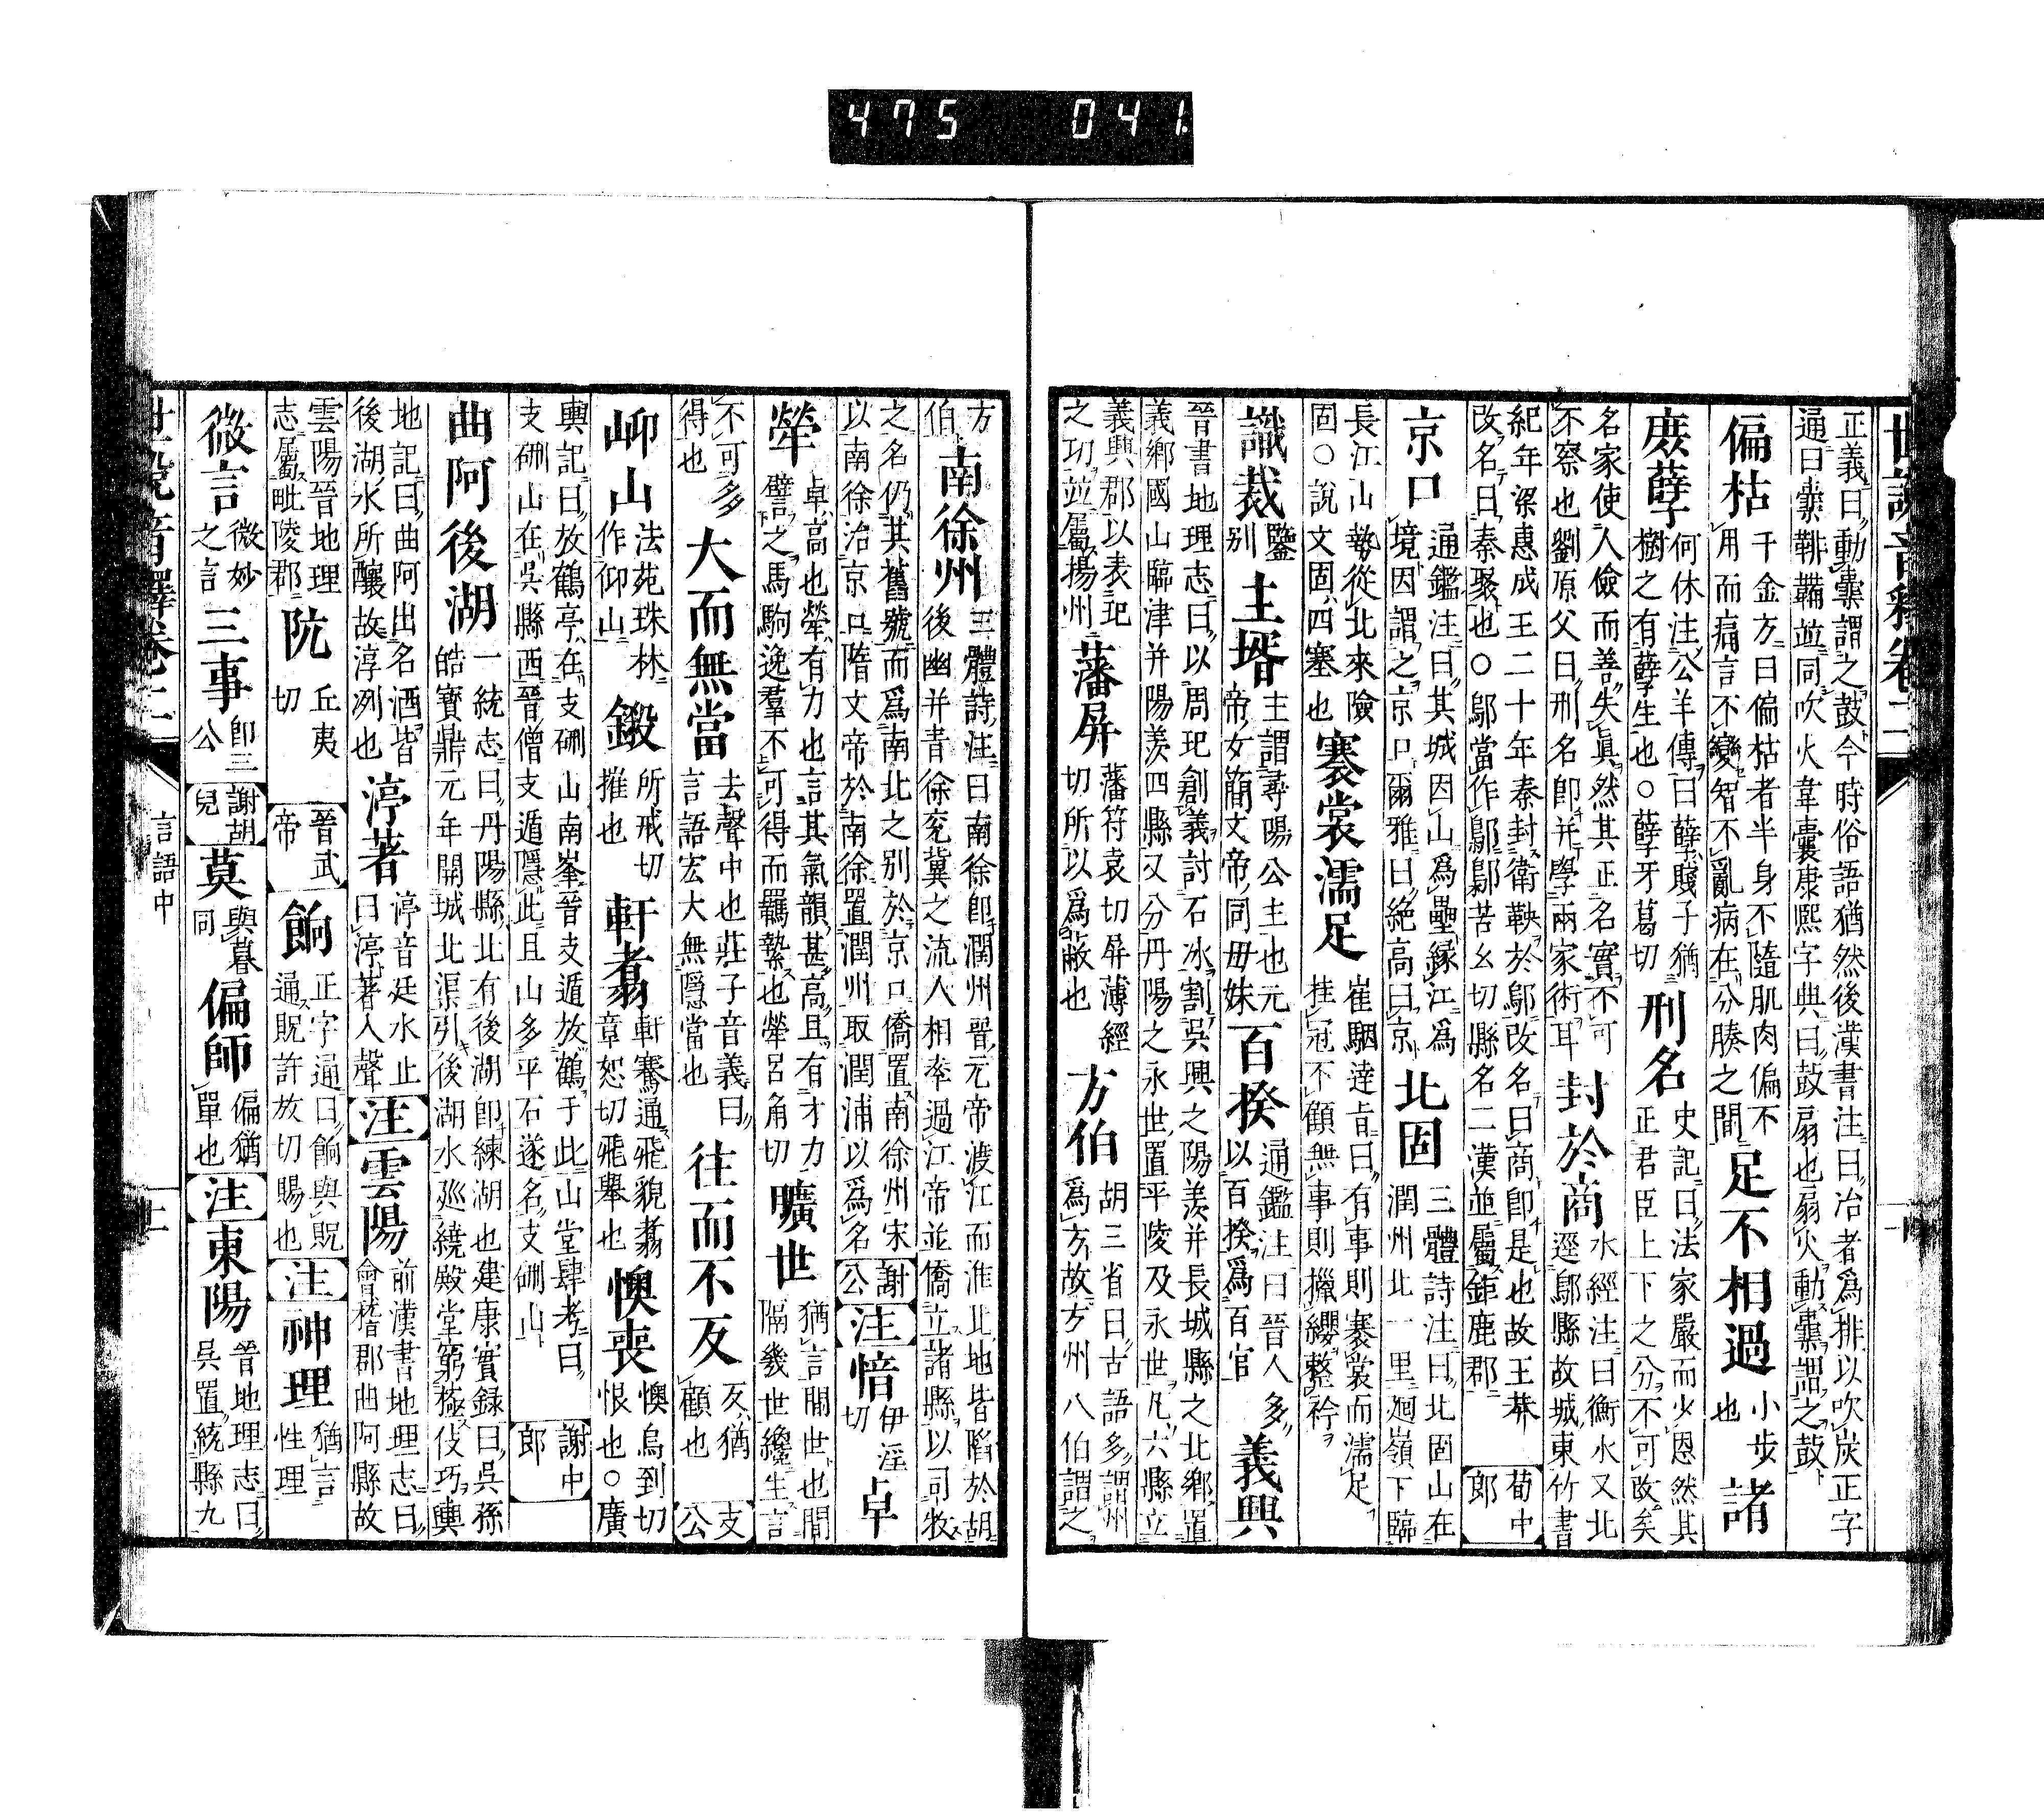 475 041.
世說音釋卷二
正義曰動橐謂之鼓今時俗語猶然後漢書注曰冶者爲排以吹炭正字
通曰橐鞴韛並同吹火韋囊康熙字典曰鼓扇也扇火動橐謂之鼓
偏枯 千金方曰偏枯者半身不隨肌肉偏不用而痛言不變智不亂病在分腠之間 足不相過 小步也 諸
庶孽 何休注公羊傳曰孽賤子猶樹之有孽生也○孽牙葛切 刑名 史記曰法家嚴而少恩然其正君臣上下之分不可改矣
名家使人儉而善失眞然其正名實不可不察也劉原父曰刑名卽并學兩家術耳 封於商 水經注曰衡水又北逕鄔縣故城東竹書
紀年梁惠成王二十年秦封衞鞅於鄔改名曰商卽是也故王莽改名曰秦聚也○鄔當作鄡鄡苦幺切縣名二漢並屬鉅鹿郡 荀中郞
京口 通鑑注曰其城因山爲壘緣江爲境因謂之京口爾雅曰絕高曰京 北固 三體詩注曰北固山在潤州北一里廻嶺下臨
長江山勢從北來險固○說文固四塞也 褰裳濡足 崔駰達旨曰有事則褰裳而濡足挂冠不顧無事則攝纓整衿
識裁 鑒別 主壻 主謂尋陽公主也元帝女簡文帝同毋妹 百揆 通鑑注曰晉人多以百揆爲百官 義興
晉書地理志曰以周玘創義討石冰割吳興之陽羨并長城縣之北鄕置義鄕國山臨津并陽羨四縣又分丹陽之永世置平陵及永世凡六縣立
義興郡以表玘之功並屬揚州 藩屛 藩符袁切屛薄經切所以爲蔽也 方伯 胡三省曰古語多謂州爲方故方州八伯謂之
方伯 南徐州 三體詩注曰南徐卽潤州晉元帝渡江而淮北地皆陷於胡後幽并青徐兗冀之流人相率過江帝並僑立諸縣以司牧
之名仍其舊號而爲南北之別於京口僑置南徐州宋以南徐治京口隋文帝於南徐置潤州取潤浦以爲名 謝公 注 愔 伊淫切 卓
犖 卓高也犖有力也言其氣韻甚高且有才力譬之馬駒逸羣不可得而羈縶也犖呂角切 曠世 猶言間世也間隔幾世纔生言
不可多得也 大而無當 去聲中也莊子音義曰言語宏大無隱當也 往而不反 反猶顧也 支公
岰山 法苑珠林作仰山 鎩 所戒切摧也 軒翥 軒騫通飛貌翥章恕切飛舉也 懊喪 懊烏到切恨也○廣
輿記曰放鶴亭在支硎山南峯晉支遁放鶴于此山堂肆考曰支硎山在吳縣西晉僧支遁隱此且山多平石遂名支硎山 謝中郞
曲阿後湖 一統志曰丹陽縣北有後湖卽練湖也建康實録曰吳孫皓寶鼎元年開城北渠引後湖水廵繞殿堂窮極伎巧輿
地記曰曲阿出名酒皆後湖水所釀故淳冽也 渟著 渟音廷水止曰渟著人聲 注 雲陽 前漢書地理志曰會稽郡曲阿縣故
雲陽晉地理志屬毗陵郡 阬 丘夷切 晉武帝 餉 正字通曰餉與貺通貺許放切賜也 注 神理 猶言性理
微言 微妙之言 三事 卽三公 謝胡兒 莫 與暮同 偏師 偏猶單也 注 東陽 晉地理志曰吳置統縣九
世說音釋卷二 言語中 二